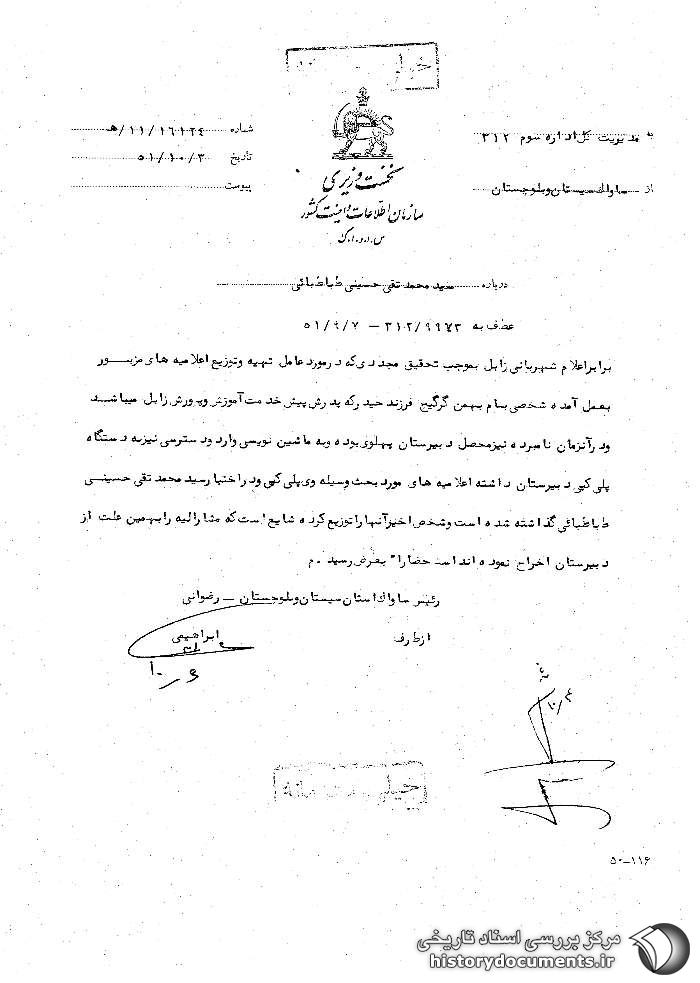 خیلی
به مدیریت کل اداره سوم ۳۱۲
از ساواک سیستان و بلوچستان
شماره ۱۶۱۲۴/۱۱/ه‍
تاریخ ۵۱/۱۰/۳۰
پیوست
نخست وزیری
سازمان اطلاعات و امنیت کشور
س.ا.و.ا.ک
درباره سید محمد تقی حسینی طباطبائی
عطف به ۳۱۲/۹۹۷۳ – ۵۱/۹/۷
برابر اعلام شهربانی زابل بموجب تحقیق مجددی که در مورد عامل تهیه و توزیع اعلامیه های مزبور
بعمل آمده شخصی بنام بهمن گرگیج فرزند حیدر که پدرش پیش خدمت آموزش و پرورش زابل میباشد
و در آنزمان نامبرده نیز محصل دبیرستان پهلوی بوده و به ماشین نویسی وارد و دسترسی نیز به دستگاه
پلی کپی دبیرستان داشته اعلامیه های مورد بحث وسیله وی پلی کپی و در اختیار سید محمد تقی حسینی
طباطبائی گذاشته شده است و شخص اخیر آنها را توزیع کرده شایع است که مشارالیه را بهمین علت از
دبیرستان اخراج نموده اند حضاراً بعرض رسید . م
رئیس ساواک استان سیستان و بلوچستان – رضوانی
از طرف
ابراهیمی
۱۰/۶
۱۰/۴
خیلی محرمانه
۵۰–۱۱۶
مرکز بررسی اسناد تاریخی
historydocuments.ir